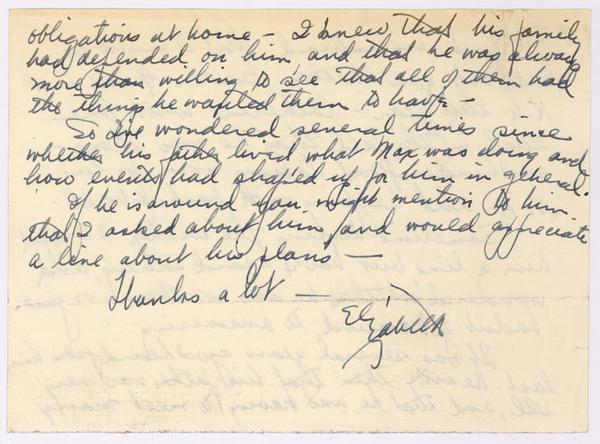 obligations at home – I knew that his family
had depended on him and that he was always
more than willing to see that all of them had
the things he wanted them to have –
So I've wondered several times since
whether his father lived what Max was doing and
how events had shaped up for him in general.
If he is around you might mention to him
that I asked about him and would appreciate
a line about his plans –
Thanks a lot –
Elizabeth